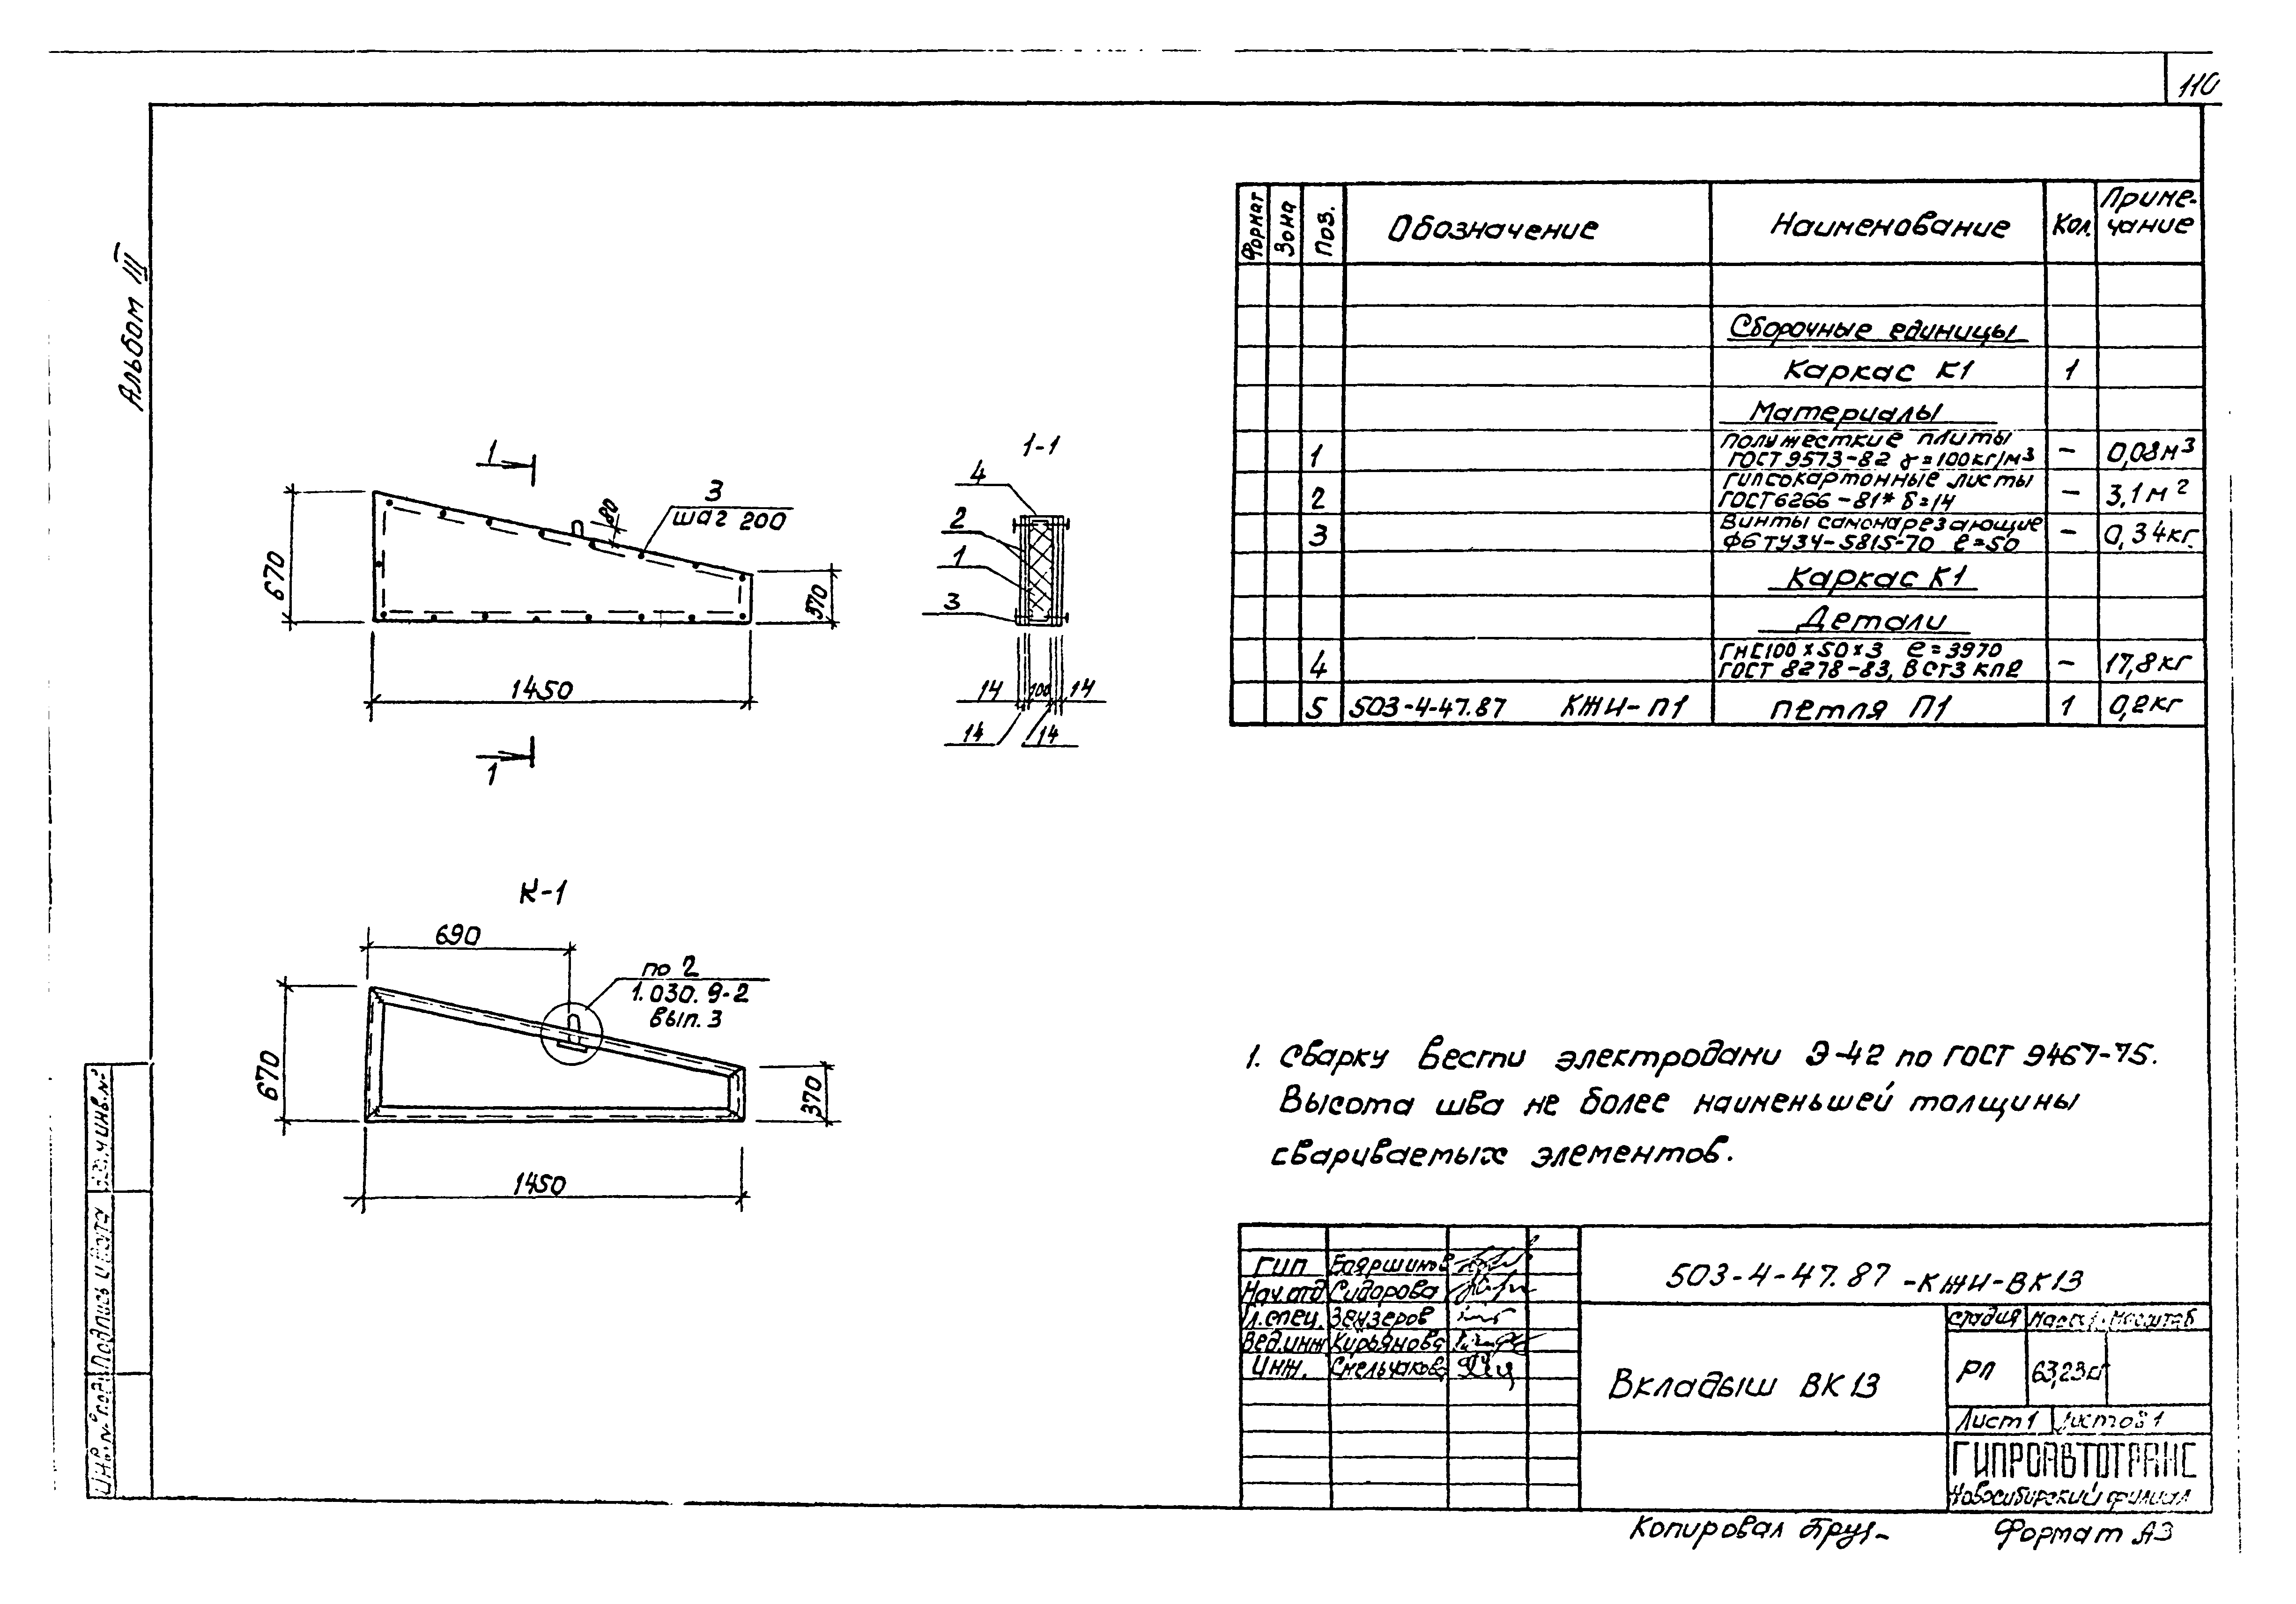 110
Альбом III
Формат Зона Поз. Обозначение Наименование Кол. Приме-
чание
Сборочные единицы
Каркас К1 1
Материалы
1 Полужесткие плиты
ГОСТ 9573-82 γ=100кг/м³ - 0,08м³
2 Гипсокартонные листы
ГОСТ 6266-81* δ=14 - 3,1м²
3 Винты самонарезающие
Ф6 ТУ34-5815-70 ℓ=50 - 0,34кг.
Каркас К1
Детали
4 ГН[100x50x3 ℓ=3970
ГОСТ 8278-83, ВСт3 кп2 - 17,8кг
5 503-4-47.87 КЖИ-П1 петля П1 1 0,2кг
1
3
шаг 200
80
670
370
1450
1
1-1
4
2
1
3
14 100 14
14 14
К-1
690
по 2
1.030.9-2
вып.3
670
370
1450
1. Сварку вести электродами Э-42 по ГОСТ 9467-75.
Высота шва не более наименьшей толщины
свариваемых элементов.
ГИП Бояршинов
Нач.отд Сидорова
Гл.спец. Зензеров
Вед.инж Кирьянова
Инж. Смельчакова
503-4-47.87 -КЖИ-ВК13
Вкладыш ВК13
стадия Масса Масштаб
РП 63,23кг
Лист 1 Листов 1
ГИПРОАВТОТРАНС
Новосибирский филиал
Копировал
Формат А3
Инв.№ подл. Подпись и дата Взам.инв.№